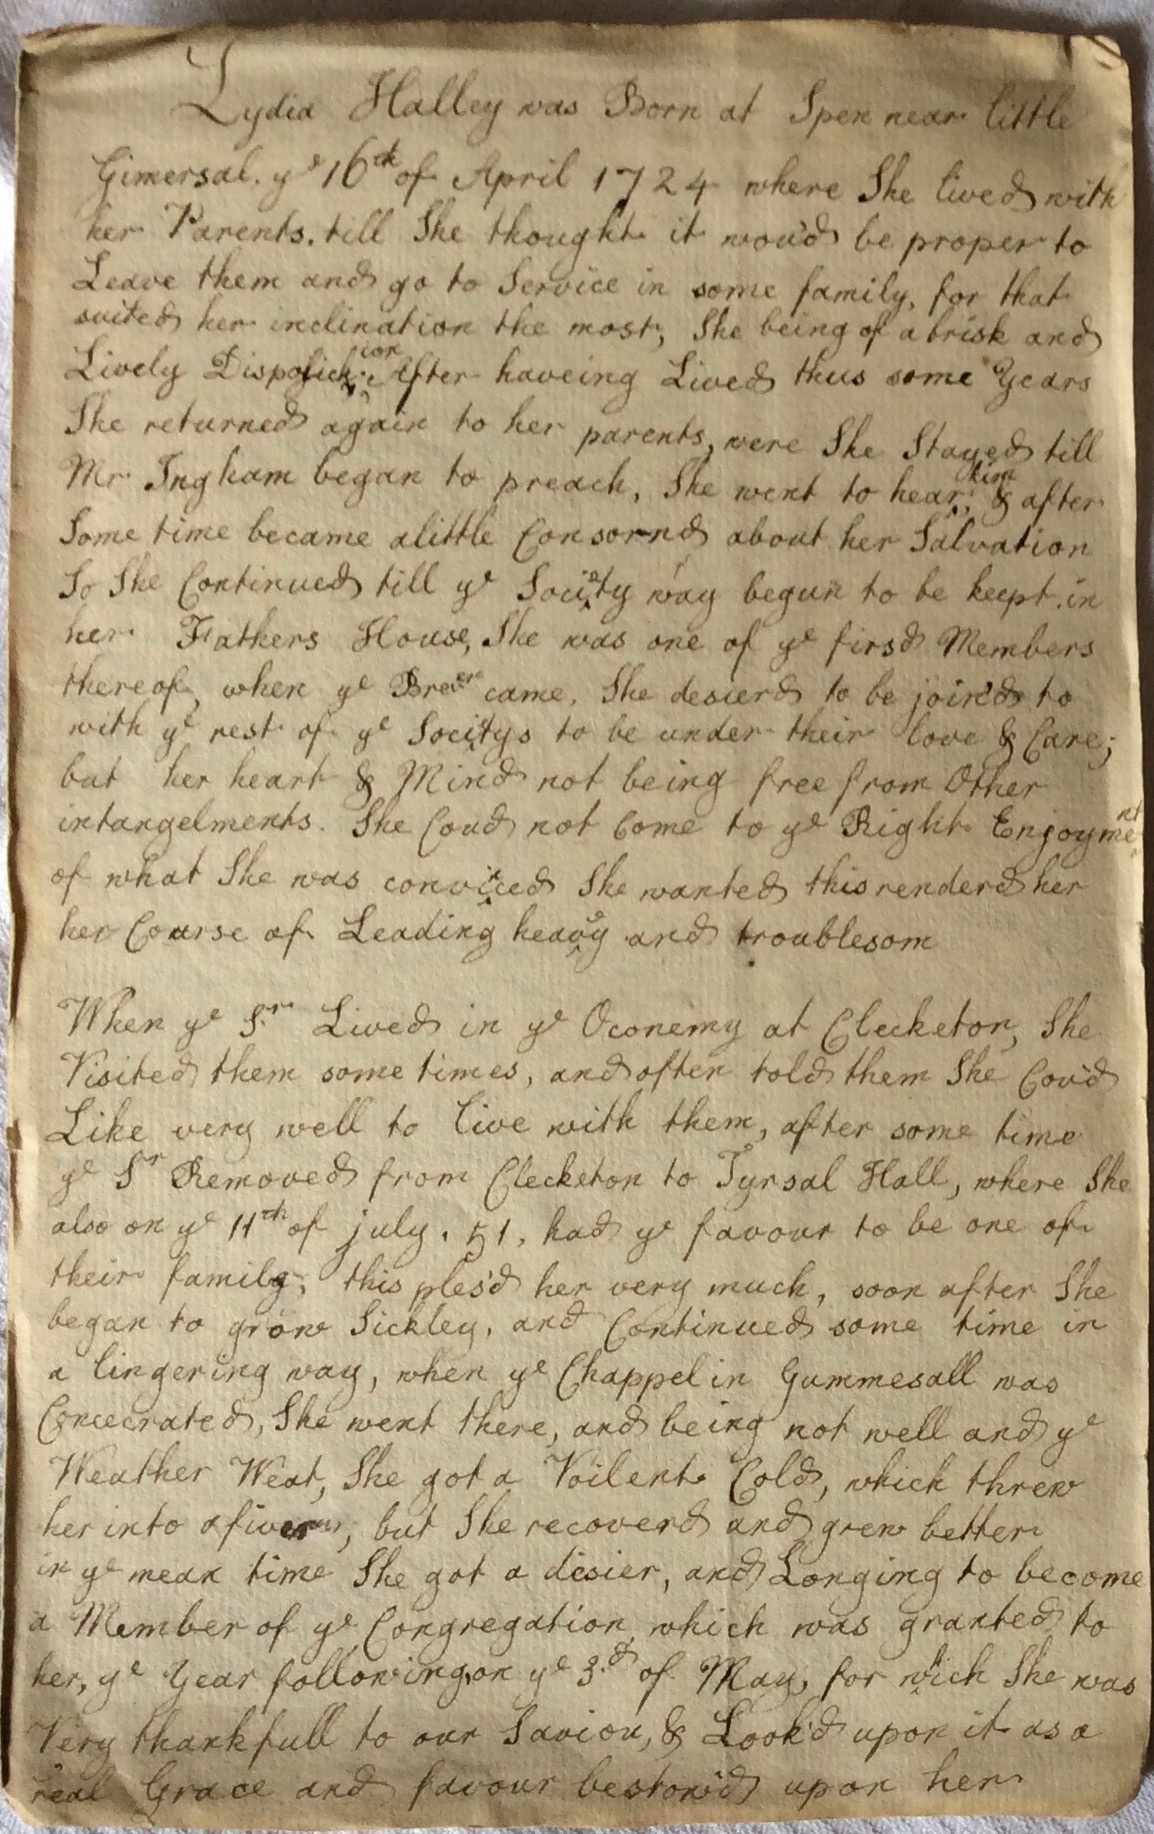 Lydia Halley was Born at Spen near little
Gimersal. ye 16th of April 1724 where She lived with
her Parents. till She thought it wou'd be proper to
Leave them and go to Service in some family, for that
suited her inclination the most; She being of a brisk and
Lively Disposition. After haveing Lived thus some Years
She returned again to her parents, were She Stayed till
Mr Ingham began to preach, She went to hear him, & after
Some time became a little Consornd about her Salvation
So She Continued till ye Society way begun to be keept in
her Fathers House, She was one of ye firsd Members
thereof, when ye Breren came, She desierd to be join'd to
with ye rest of ye Societys to be under their love & Care;
but her heart & Mind not being free from Other
intangelments. She Coud not Come to ye Right Enjoyment
of what She was convinced She wanted this renderd her
her Course of Leading heavey and troublesom
When ye Sr Lived in ye Oconemy at Clecketon, She
Visited them some times, and often told them She Cou'd
Like very well to live with them, after some time
ye Sr Removed from Clecketon to Tyrsal Hall, where She
also on ye 11th of july. 51, had ye favour to be one of
their family; this ples'd her very much, soon after She
began to grow Sickley, and Continued some time in
a lingering way, when ye Chappel in Gummesall was
Concecrated, She went there, and being not well and ye
Weather Weat, She got a Voilent Cold, which threw
her into a fiver, but She recoverd and grew better
in ye mean time She got a disier, and Longing to become
a Member of ye Congregation, which was granted to
her, ye Year following, on ye 3.d of May, for which She was
Very thankfull to our Saviou, & Look'd upon it as a
real Grace and favour bestow'd upon her